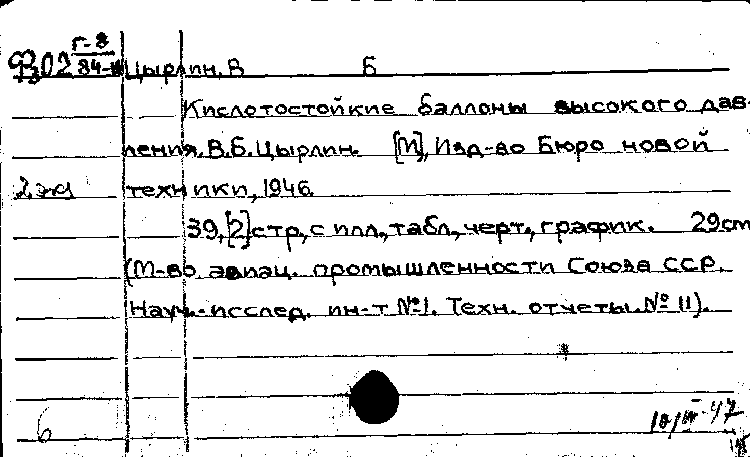 Г-8
Ф302 84-III Цырлин, В Б
Кислотостойкие баллоны высокого дав-
ления. В.Б. Цырлин. [М], Изд-во Бюро новой
2 экз техники, 1946.
39, [2] стр, с илл., табл., черт., график. 29cm
(М-во. авиац. промышленности Союза ССР.
Науч.-исслед. ин-т №1. Техн. отчеты. № 11).
6